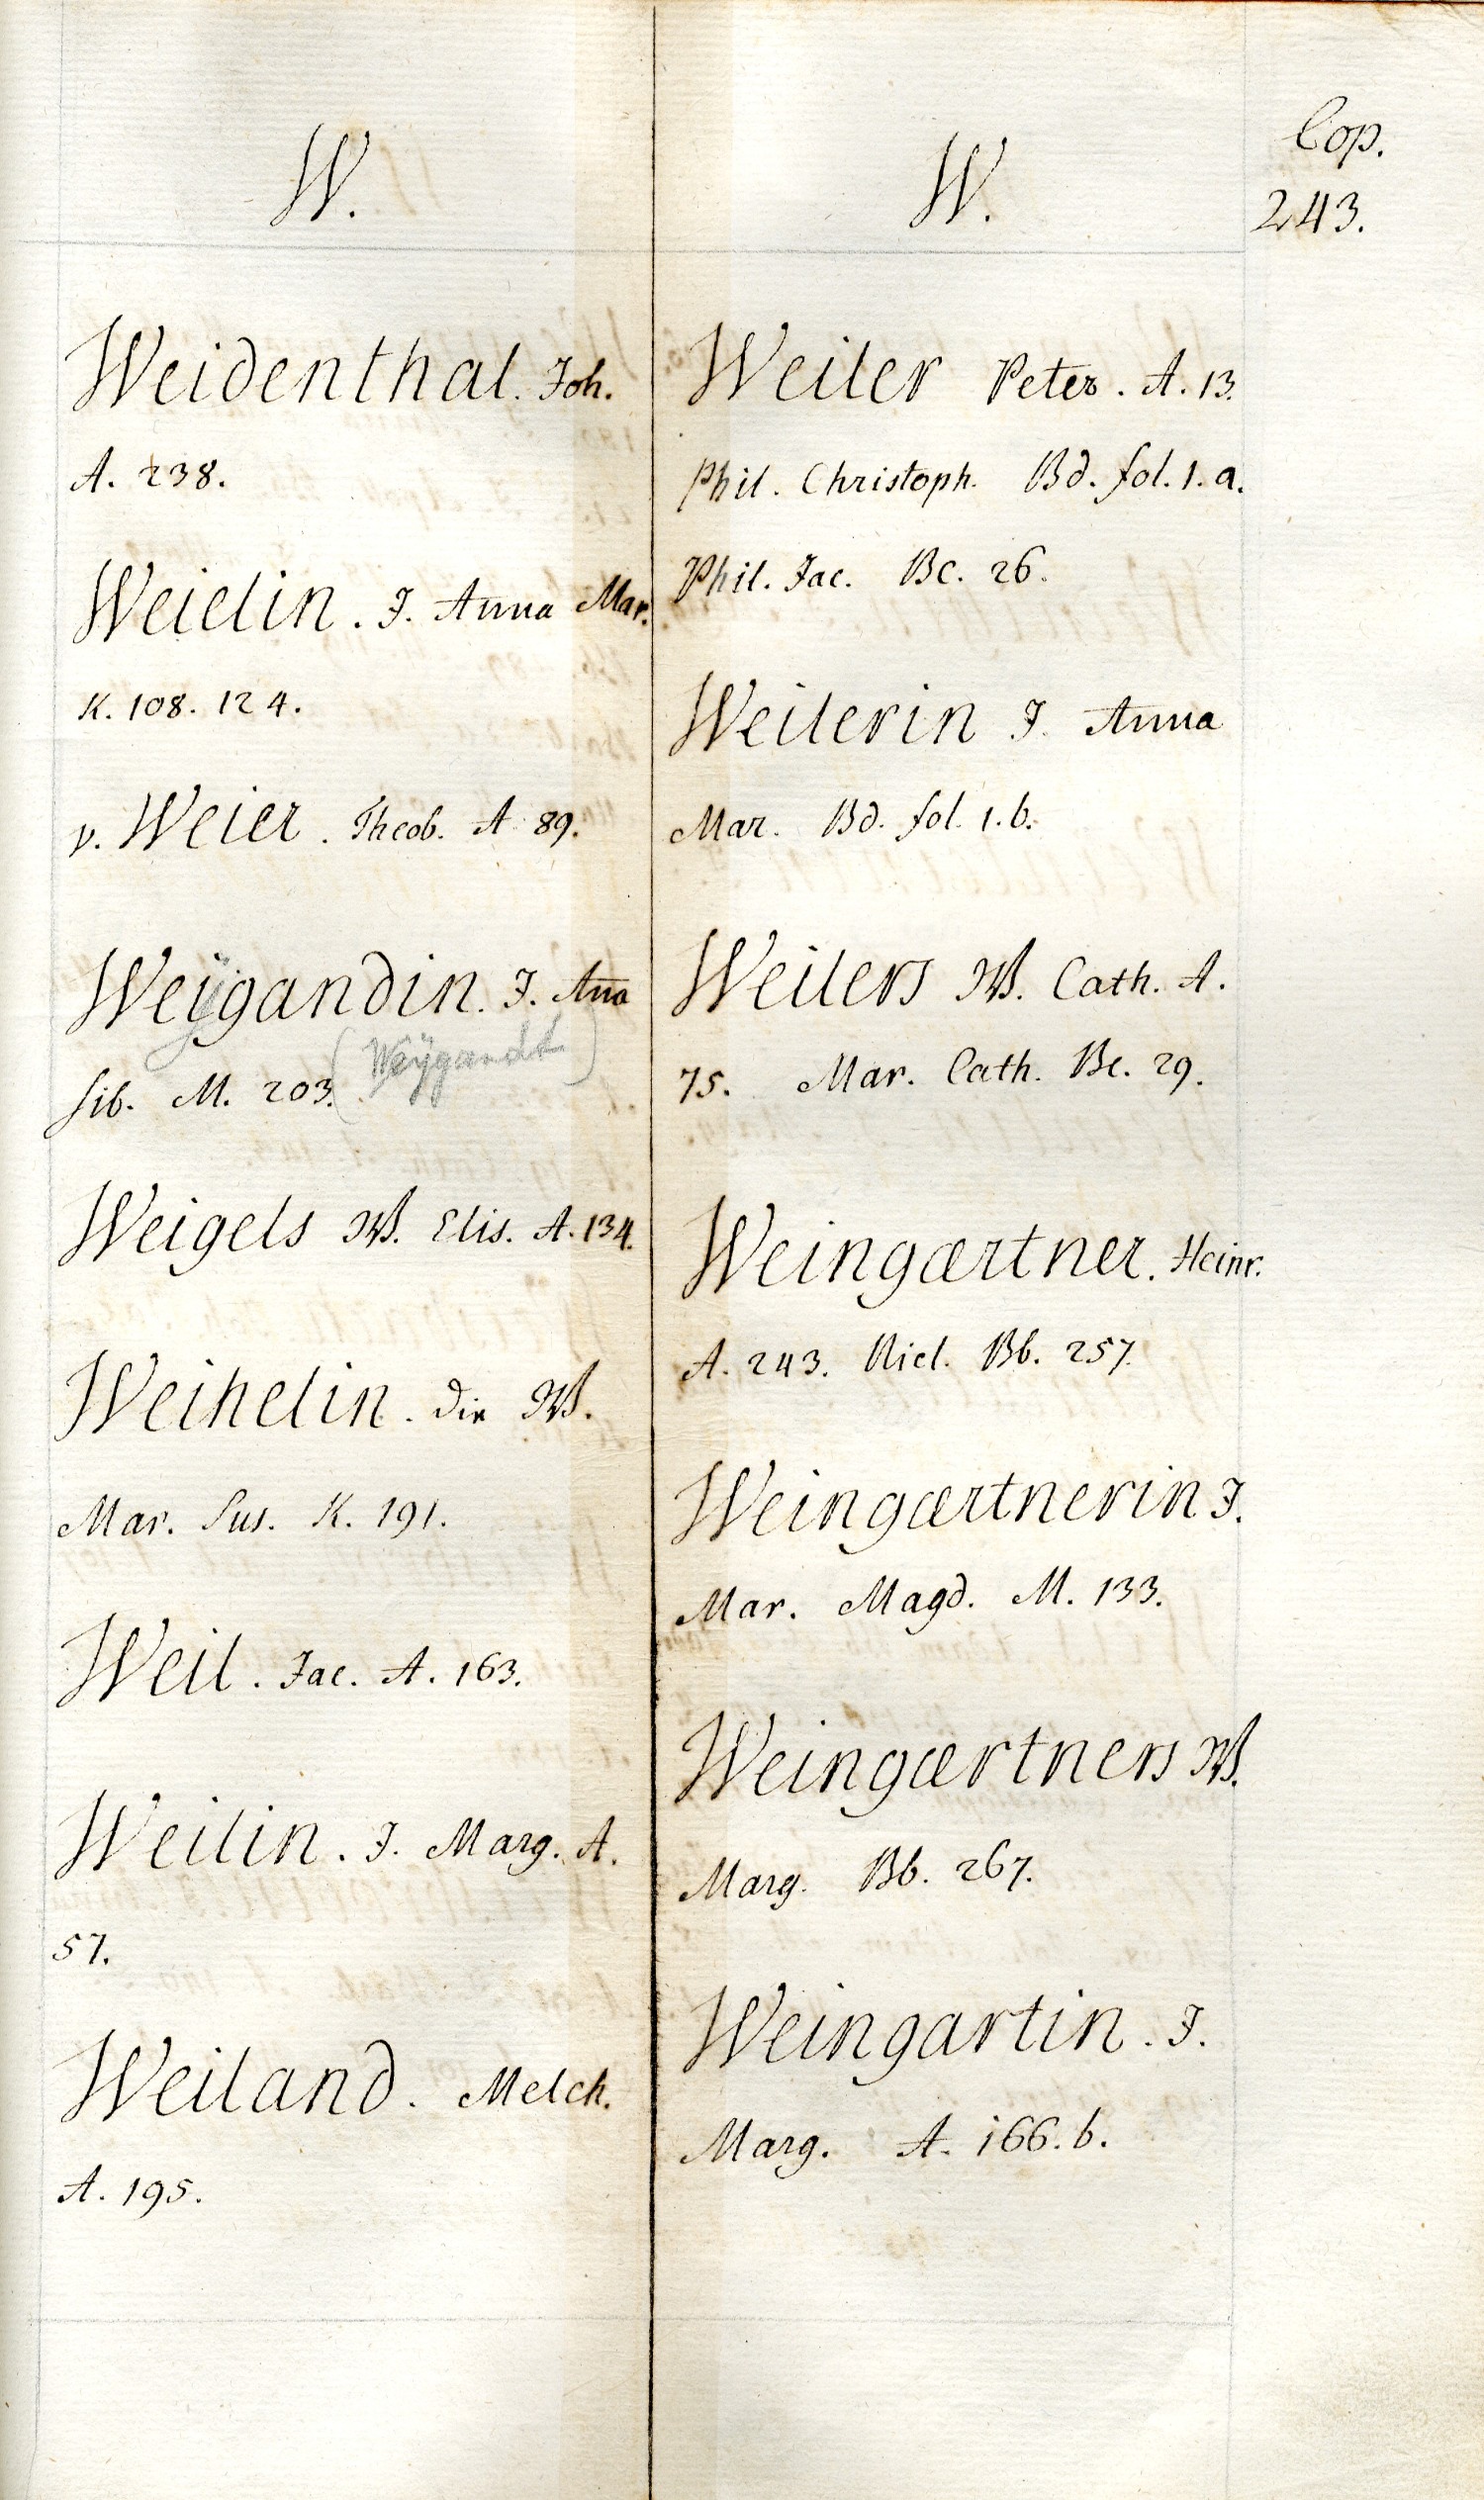 W.
Weidenthal. Joh.
A. 238.
Weielin. J. Anna Mar.
K. 108. 124.
v. Weier. Theob. A. 89.
Weÿgandin. J. Aña
Sib. M. 203. (Weÿgandt)
Weigels W. Elis. A. 134.
Weihelin. die W.
Mar. Sus. K. 191.
Weil. Jac. A. 163.
Weilin. J. Marg. A.
57.
Weiland. Melch.
A. 195.
W.
Weiler Peter. A. 13.
Phil. Christoph. Bd. fol. 1. a.
Phil. Jac. Bc. 26.
Weilerin J. Anna
Mar. Bd. fol. 1. b.
Weilers W. Cath. A.
75. Mar. Cath. Bc. 29.
Weingærtner. Heinr.
A. 243. Nicl. Bb. 257.
Weingærtnerin J.
Mar. Magd. M. 133.
Weingærtners W.
Marg. Bb. 267.
Weingartin. J.
Marg. A. 166. b.
Cop.
243.